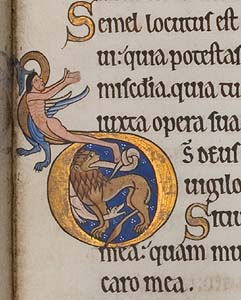 Semel locutus est
ui: quia potestas
misc̄dia. quia tu
iuxta opera sua
S̄ DEUS
uigilo
Sitiu
mea: quam mu
caro mea.